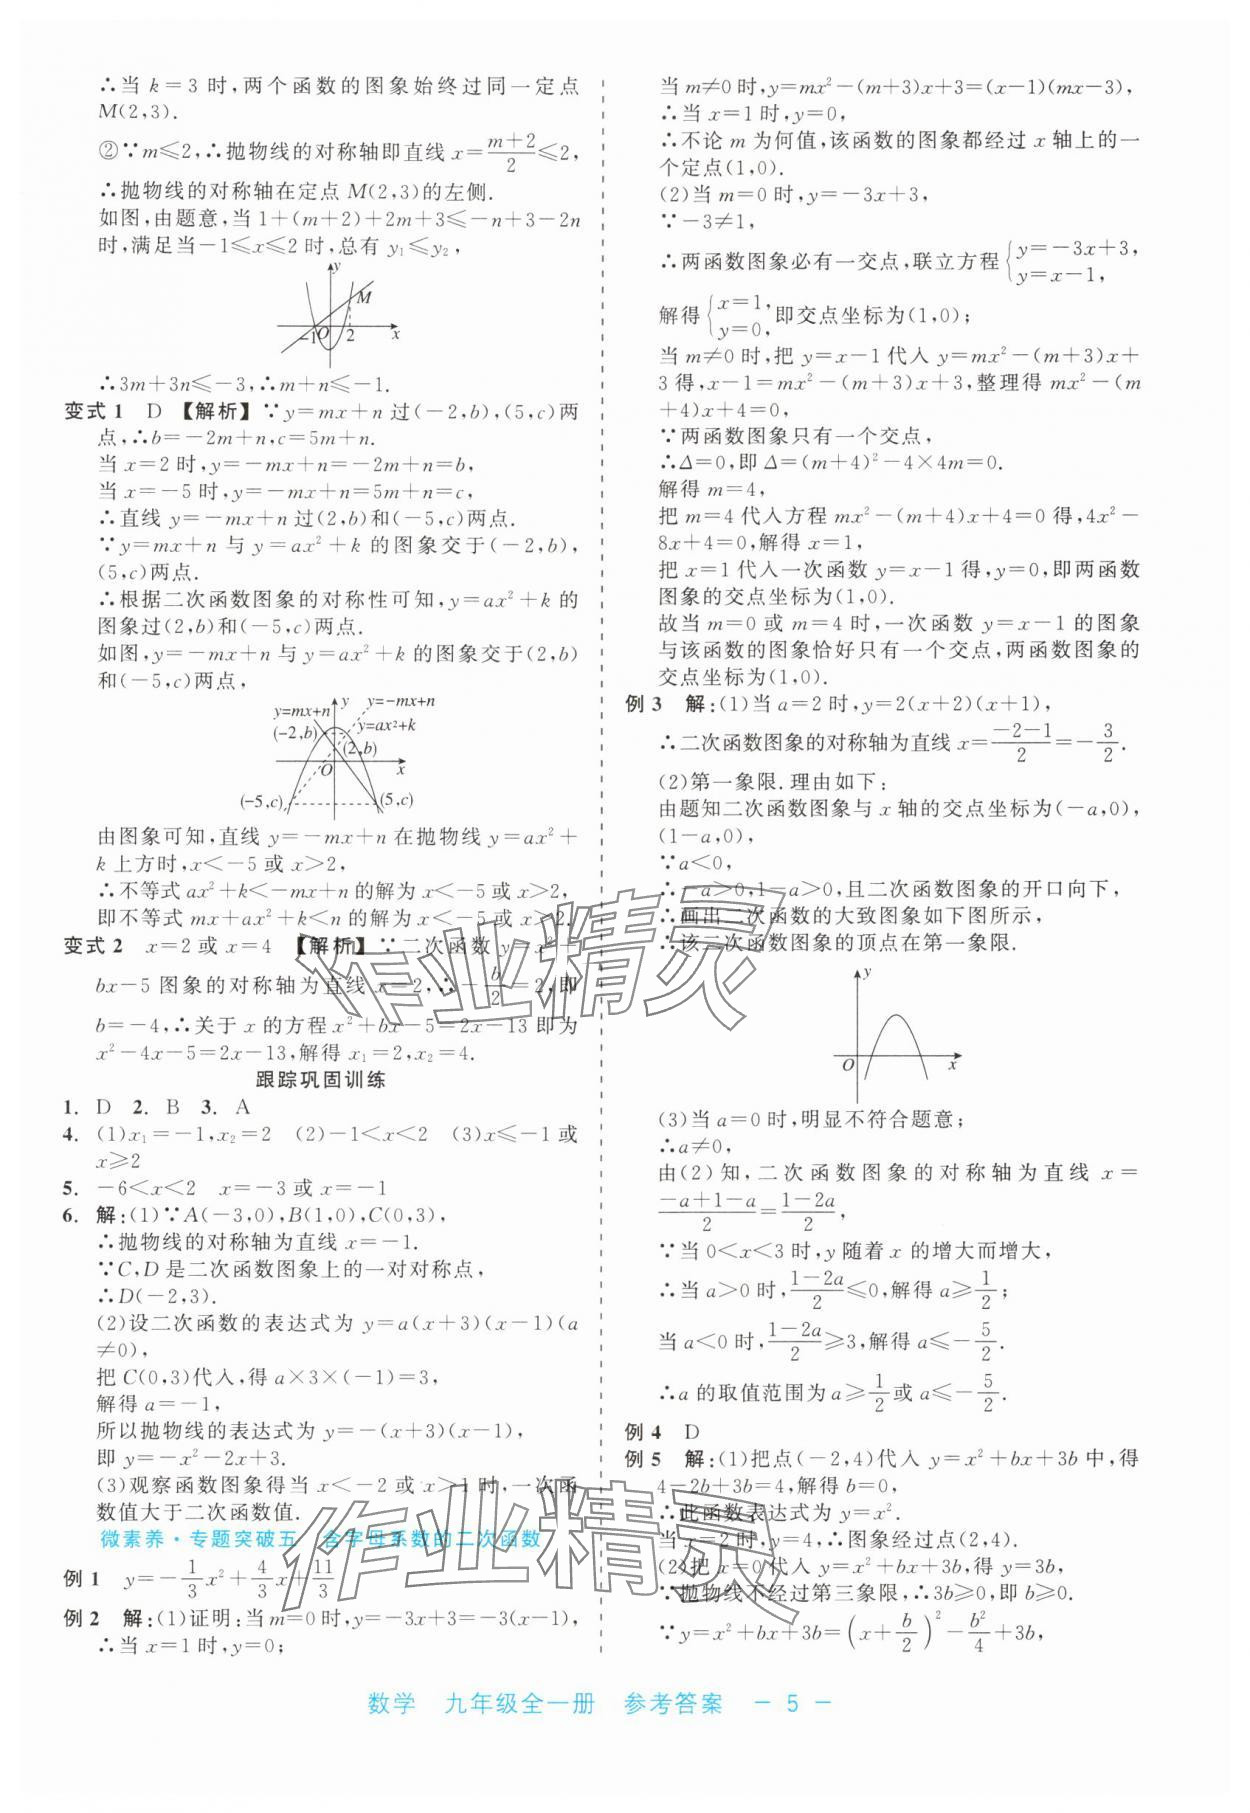 ∴当 k=3 时,两个函数的图象始终过同一定点
M(2,3).
②∵m≤2,∴抛物线的对称轴即直线 x=\frac{m+2}{2}≤2,
∴抛物线的对称轴在定点 M(2,3)的左侧.
如图,由题意,当 1+(m+2)+2m+3≤-n+3-2n
时,满足当-1≤x≤2 时,总有 y₁≤y₂,
y
M
-1 O 2 x
∴3m+3n≤-3,∴m+n≤-1.
变式 1 D 【解析】∵y=mx+n 过(-2,b),(5,c)两
点,∴b=-2m+n,c=5m+n.
当 x=2 时,y=-mx+n=-2m+n=b,
当 x=-5 时,y=-mx+n=5m+n=c,
∴直线 y=-mx+n 过(2,b)和(-5,c)两点.
∵y=mx+n 与 y=ax²+k 的图象交于(-2,b),
(5,c)两点.
∴根据二次函数图象的对称性可知,y=ax²+k 的
图象过(2,b)和(-5,c)两点.
如图,y=-mx+n 与 y=ax²+k 的图象交于(2,b)
和(-5,c)两点,
y=mx+n y y=-mx+n
(-2,b) y=ax²+k
(2,b)
O x
(-5,c) (5,c)
由图象可知,直线 y=-mx+n 在抛物线 y=ax²+
k 上方时,x<-5 或 x>2,
∴不等式 ax²+k<-mx+n 的解为 x<-5 或 x>2,
即不等式 mx+ax²+k<n 的解为 x<-5 或 x>2.
变式 2 x=2 或 x=4 【解析】∵二次函数 y=x²+
bx-5 图象的对称轴为直线 x=2,∴-\frac{b}{2}=2,即
b=-4,∴关于 x 的方程 x²+bx-5=2x-13 即为
x²-4x-5=2x-13,解得 x₁=2,x₂=4.
跟踪巩固训练
1. D 2. B 3. A
4. (1)x₁=-1,x₂=2 (2)-1<x<2 (3)x≤-1 或
x≥2
5. -6<x<2 x=-3 或 x=-1
6. 解:(1)∵A(-3,0),B(1,0),C(0,3),
∴抛物线的对称轴为直线 x=-1.
∵C,D 是二次函数图象上的一对对称点,
∴D(-2,3).
(2)设二次函数的表达式为 y=a(x+3)(x-1)(a
≠0),
把 C(0,3)代入,得 a×3×(-1)=3,
解得 a=-1,
所以抛物线的表达式为 y=-(x+3)(x-1),
即 y=-x²-2x+3.
(3)观察函数图象得当 x<-2 或 x>1 时,一次函
数值大于二次函数值.
微素养·专题突破五 含字母系数的二次函数
例 1 y=-\frac{1}{3}x²+\frac{4}{3}x+\frac{11}{3}
例 2 解:(1)证明:当 m=0 时,y=-3x+3=-3(x-1),
∴当 x=1 时,y=0;
当 m≠0 时,y=mx²-(m+3)x+3=(x-1)(mx-3),
∴当 x=1 时,y=0,
∴不论 m 为何值,该函数的图象都经过 x 轴上的一
个定点(1,0).
(2)当 m=0 时,y=-3x+3,
∵-3≠1,
∴两函数图象必有一交点,联立方程{y=-3x+3, y=x-1,
解得{x=1, y=0, 即交点坐标为(1,0);
当 m≠0 时,把 y=x-1 代入 y=mx²-(m+3)x+
3 得,x-1=mx²-(m+3)x+3,整理得 mx²-(m
+4)x+4=0,
∵两函数图象只有一个交点,
∴Δ=0,即 Δ=(m+4)²-4×4m=0.
解得 m=4,
把 m=4 代入方程 mx²-(m+4)x+4=0 得,4x²-
8x+4=0,解得 x=1,
把 x=1 代入一次函数 y=x-1 得,y=0,即两函数
图象的交点坐标为(1,0).
故当 m=0 或 m=4 时,一次函数 y=x-1 的图象
与该函数的图象恰好只有一个交点,两函数图象的
交点坐标为(1,0).
例 3 解:(1)当 a=2 时,y=2(x+2)(x+1),
∴二次函数图象的对称轴为直线 x=\frac{-2-1}{2}=-\frac{3}{2}.
(2)第一象限.理由如下:
由题知二次函数图象与 x 轴的交点坐标为(-a,0),
(1-a,0),
∵a<0,
∴-a>0,1-a>0,且二次函数图象的开口向下,
∴画出二次函数的大致图象如下图所示,
∴该二次函数图象的顶点在第一象限.
y
O x
(3)当 a=0 时,明显不符合题意;
∴a≠0,
由(2)知,二次函数图象的对称轴为直线 x=
\frac{-a+1-a}{2}=\frac{1-2a}{2},
∵当 0<x<3 时,y 随着 x 的增大而增大,
∴当 a>0 时,\frac{1-2a}{2}≤0,解得 a≥\frac{1}{2};
当 a<0 时,\frac{1-2a}{2}≥3,解得 a≤-\frac{5}{2}.
∴a 的取值范围为 a≥\frac{1}{2}或 a≤-\frac{5}{2}.
例 4 D
例 5 解:(1)把点(-2,4)代入 y=x²+bx+3b 中,得
4-2b+3b=4,解得 b=0,
∴此函数表达式为 y=x².
当 x=2 时,y=4,∴图象经过点(2,4).
(2)把 x=0 代入 y=x²+bx+3b,得 y=3b,
∵抛物线不经过第三象限,∴3b≥0,即 b≥0.
∵y=x²+bx+3b=(x+\frac{b}{2})²-\frac{b²}{4}+3b,
作业精灵
作业精灵
数学 九年级全一册 参考答案 — 5 —